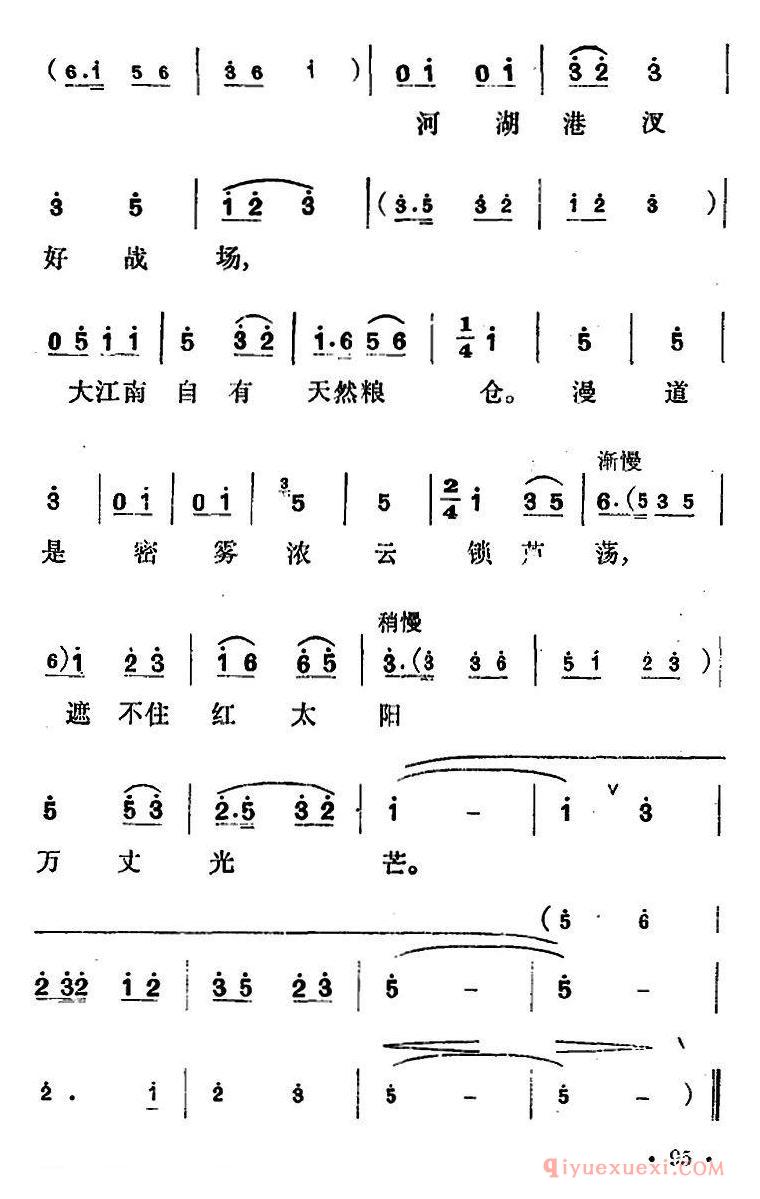 (6.i 56 | 36 i) | 0i 0i | 32 3 |
河湖港汊
3 5 | 12 3 | (3.5 32 | 12 3) |
好战场,
05 11 | 5 32 | 1.6 56 | 1/4 1 | 5 | 5 |
大江南自有天然粮仓。漫道
渐慢
3 | 01 | 01 | 5 | 5 | 2/4 1 35 | 6.(5 35 |
是密雾浓云锁芦荡,
稍慢
6)1 23 | 16 65 | 3.(3 36 | 51 23) |
遮不住红太阳
5 53 | 2.5 32 | 1 – | 1 ∨ 3 |
万丈光芒。
(5 · 6 |
2 32 12 | 35 23 | 5 – | 5 – |
2. 1 | 2 3 | 5 – | 5 –) ‖
· 95 ·
qiyuexuexi.com